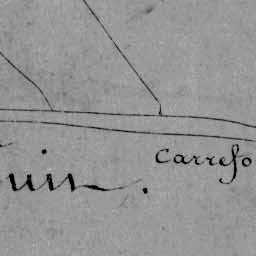 Carrefo
uin.